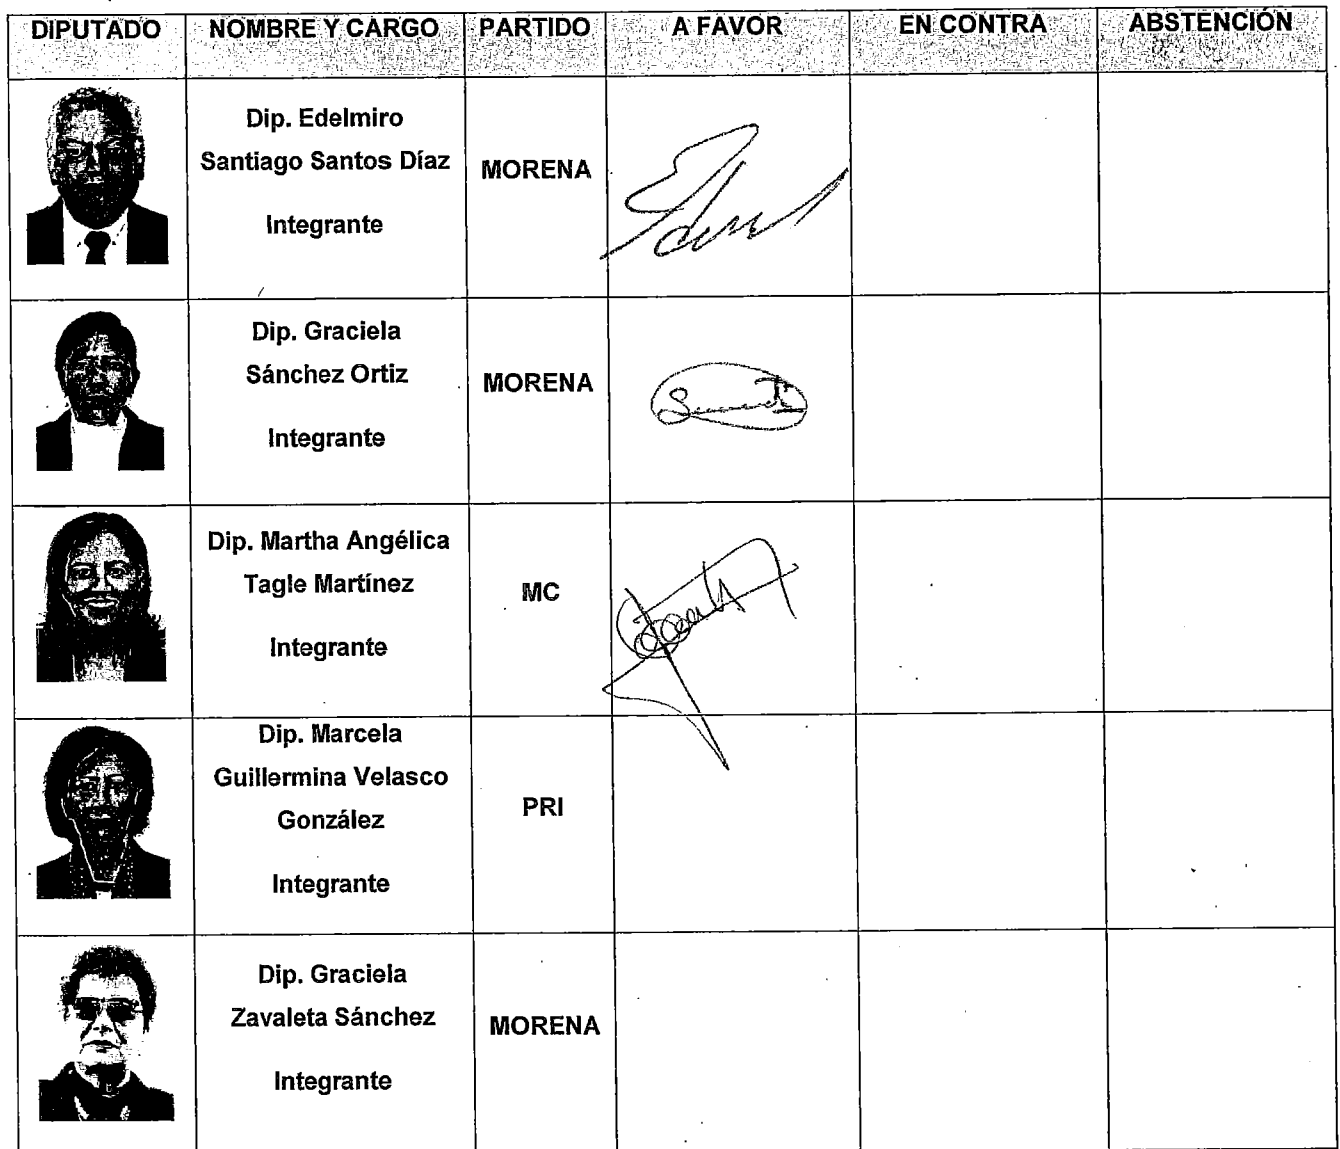 DIPUTADO NOMBRE Y CARGO PARTIDO A FAVOR EN CONTRA ABSTENCIÓN
Dip. Edelmiro
Santiago Santos Díaz
Integrante
MORENA
Dip. Graciela
Sánchez Ortiz
Integrante
MORENA
Dip. Martha Angélica
Tagle Martínez
Integrante
MC
Dip. Marcela
Guillermina Velasco
González
Integrante
PRI
Dip. Graciela
Zavaleta Sánchez
Integrante
MORENA